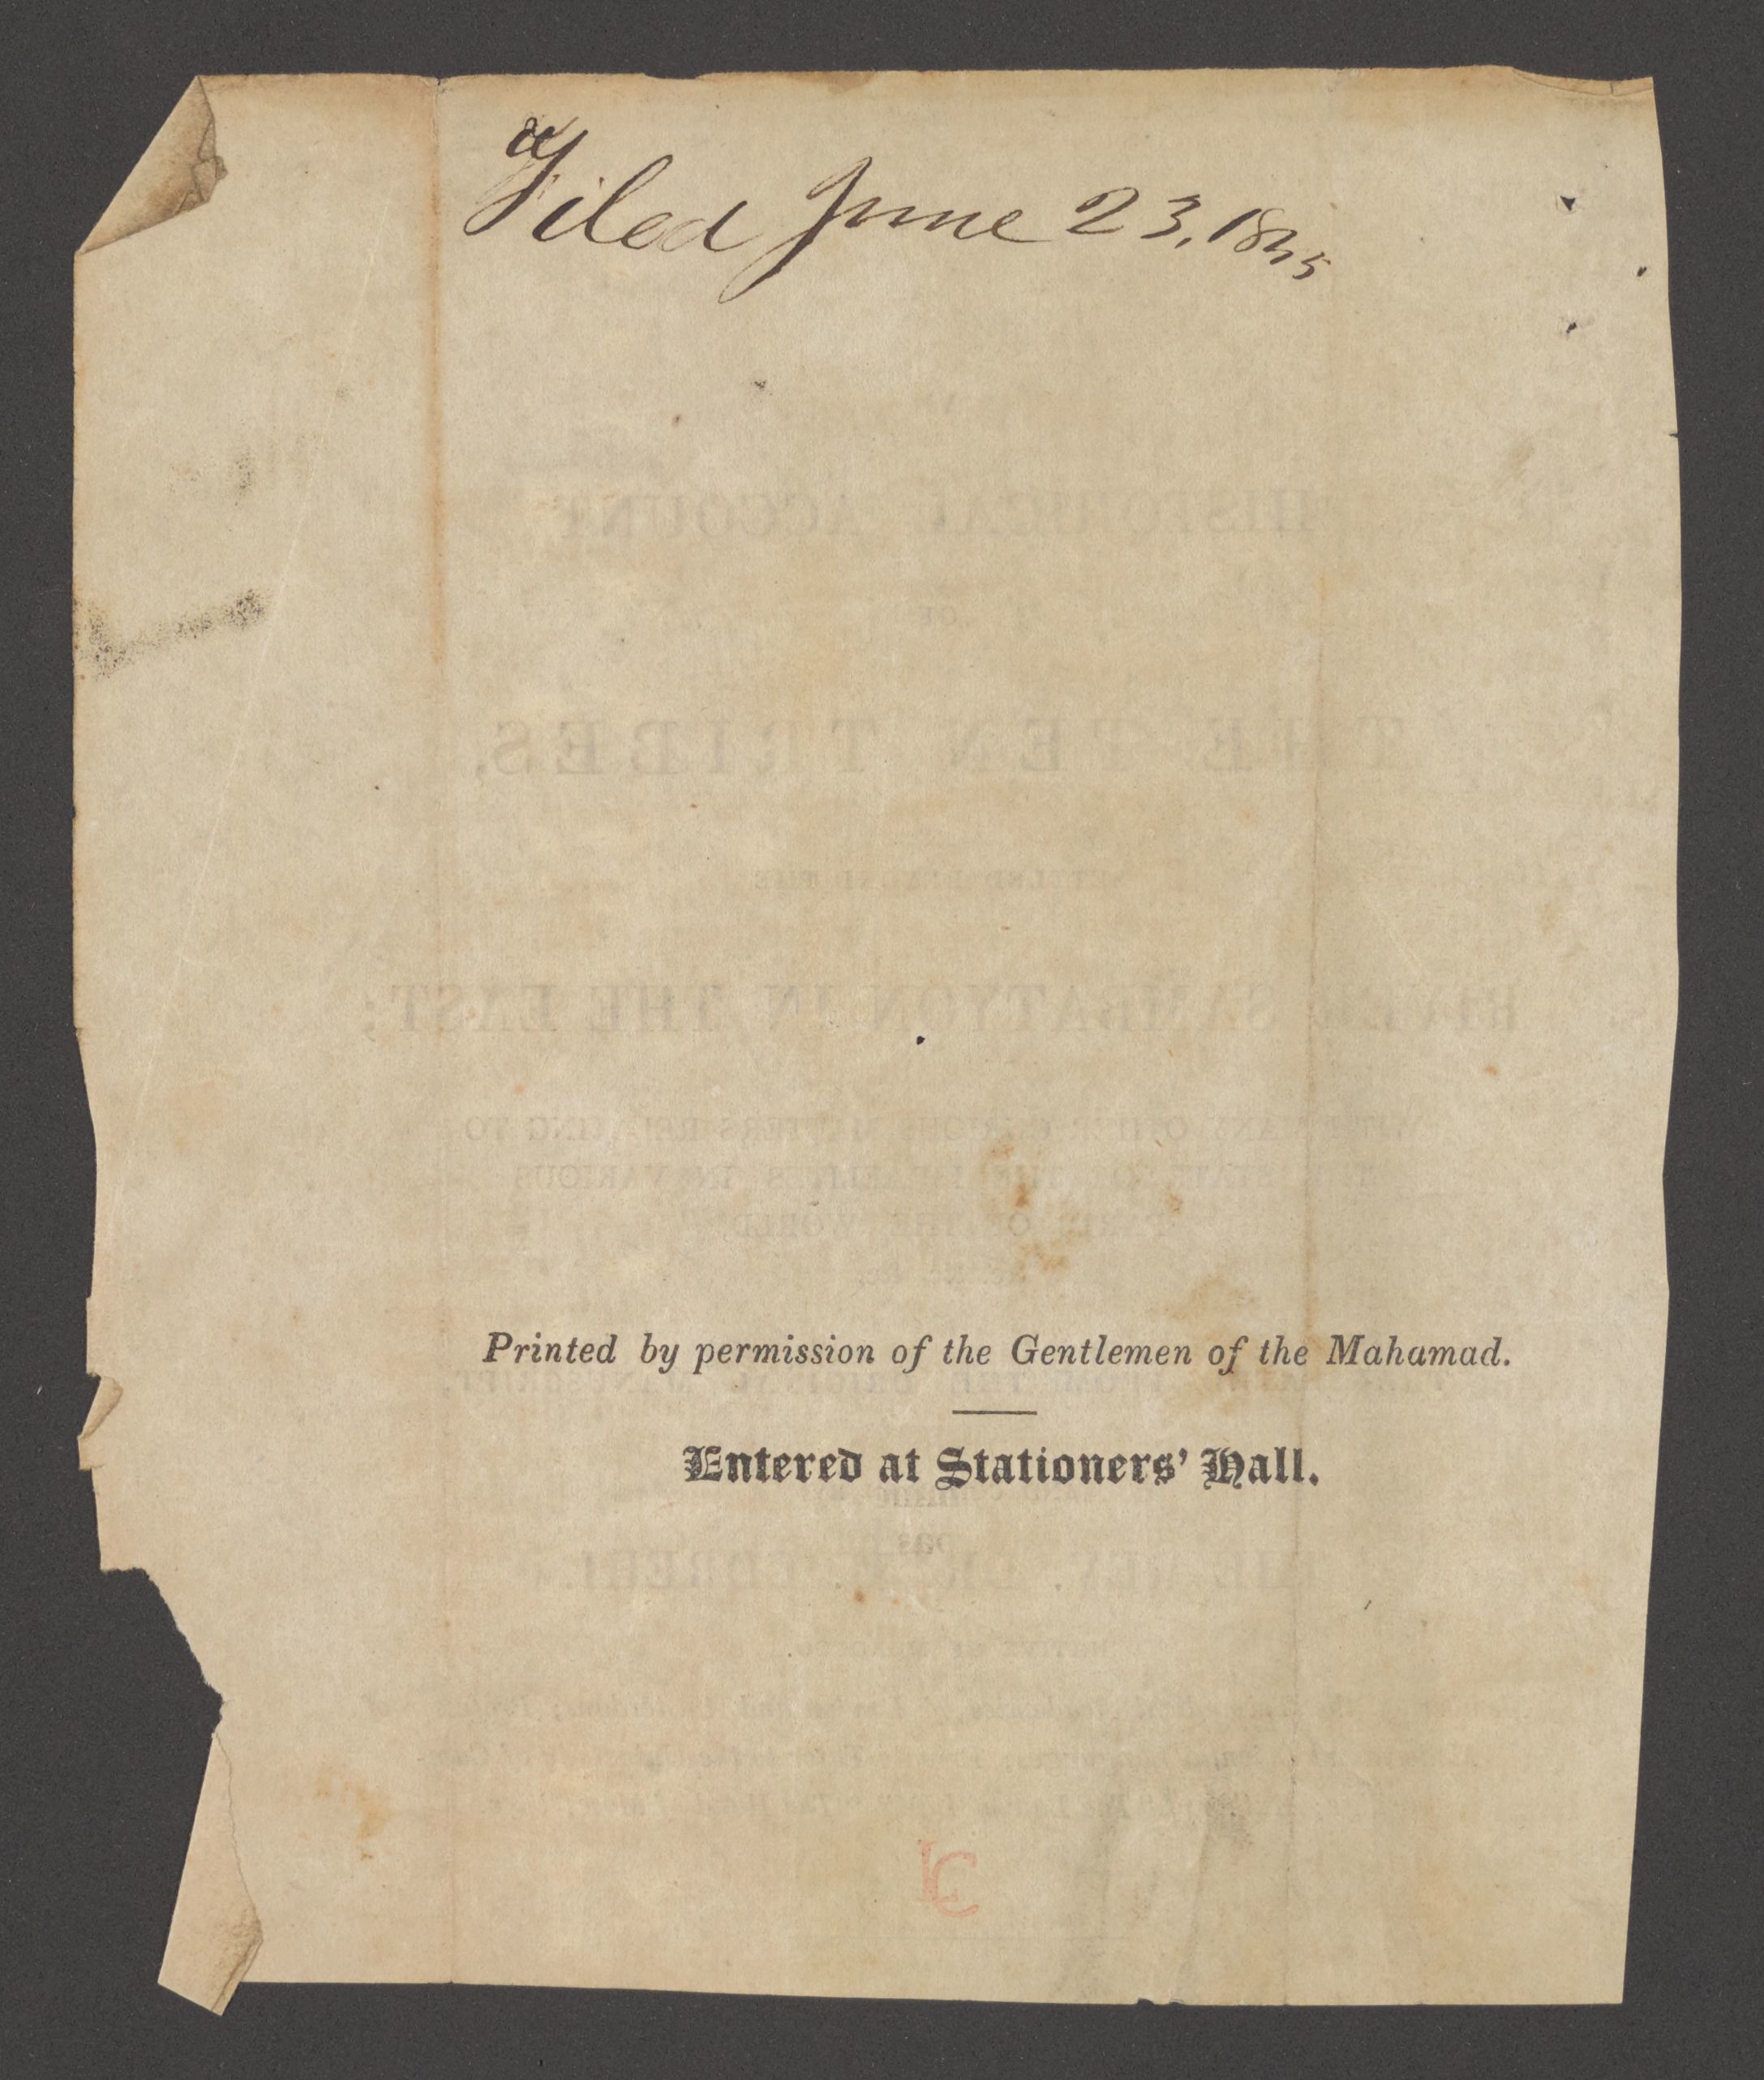 Filed June 23, 1855
Printed by permission of the Gentlemen of the Mahamad.
Entered at Stationers' Hall.